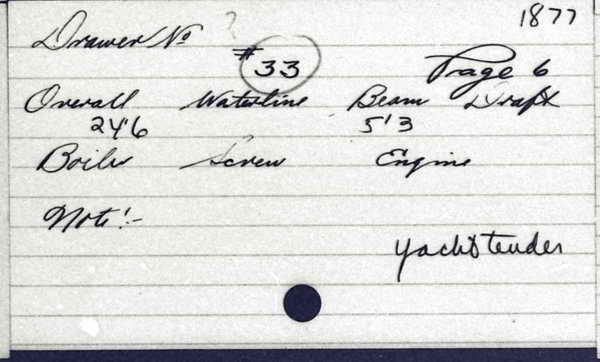 1877
Drawer No ?
#33
Page 6
Overall Waterline Beam Draft
24'6 5'3
Boiler Screw Engine
Note:-
yacht tender